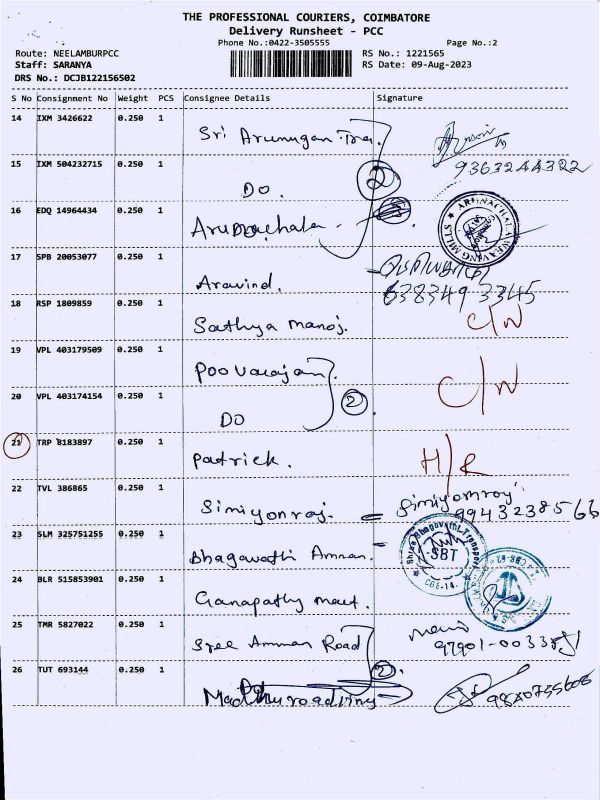 THE PROFESSIONAL COURIERS, COIMBATORE
Delivery Runsheet - PCC
Phone No.:0422-3505555 Page No.:2
Route: NEELAMBURPCC RS No.: 1221565
Staff: SARANYA RS Date: 09-Aug-2023
DRS No.: DCJB122156502
S No Consignment No Weight PCS Consignee Details Signature
14 IXM 3426622 0.250 1 Sri Arumugan Tra.
9363244322
15 IXM 504232715 0.250 1 DO. 2
16 EDQ 14964434 0.250 1 Arunachala ARUNACHALA MILLS
17 SPB 20053077 0.250 1 Aravind.
638349-3345
18 RSP 1809859 0.250 1 Sathya manoj. C/N
19 VPL 403179509 0.250 1 Poovarajan
20 VPL 403174154 0.250 1 DO 2 C/N
21 TRP 8183897 0.250 1 Patrick. H/R
22 TVL 386865 0.250 1 Simiyonraj. Simiyonraj
9943238566
23 SLM 325751255 0.250 1 Bhagawathi Amman. Shree Bhagavathi Transport SBT CBE-14.
24 BLR 515853901 0.250 1 Ganapathy
25 TMR 5827022 0.250 1 Sree Amman Road
97901-00335
26 TUT 693144 0.250 1 2